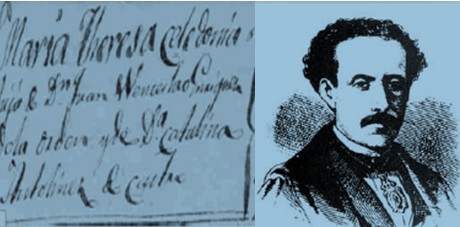 Maria Theresa Celedonia
hija de Dn Juan Wenceslao
de la orden y de Da Catalina
Antolinez de Castro